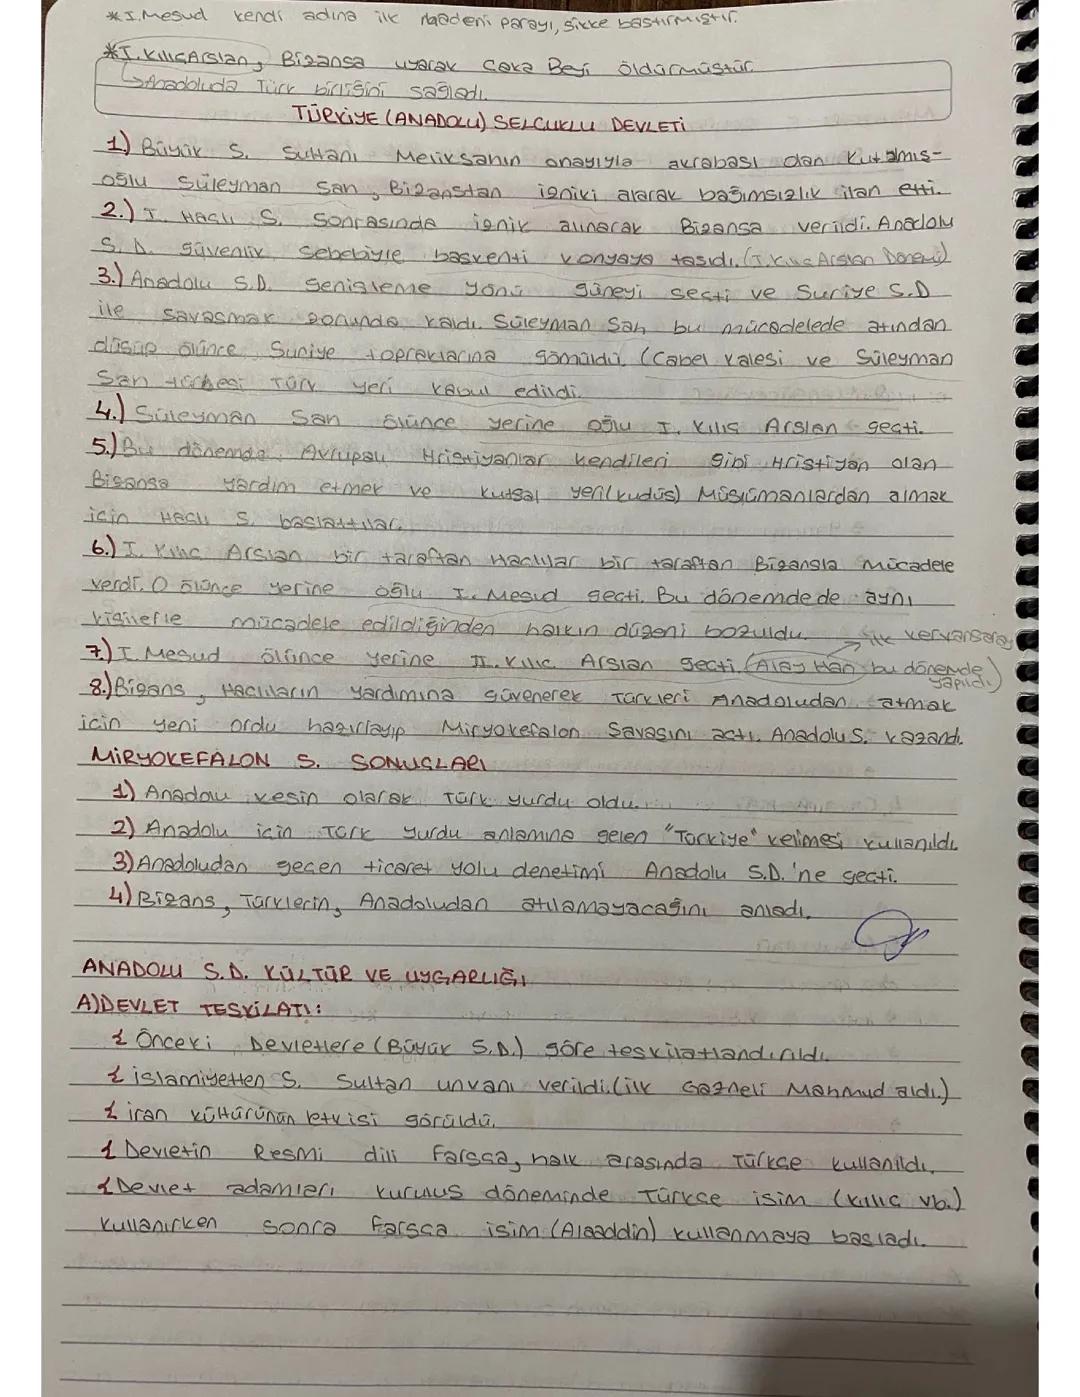 *I.Mesud kendi adına ilk madeni parayı, sikke bastırmıştır.
*I. KılıçArslan, Bizansa uyarak Çaka Beyi öldürmüştür.
↳Anadoluda Türk birliğini sağladı.
TÜRKİYE (ANADOLU) SELÇUKLU DEVLETİ
1) Büyük S. Sultanı Melikşahın onayıyla akrabası olan Kutalmış-
oğlu Süleyman Şah, Bizanstan İzniki alarak bağımsızlık ilan etti.
2.) I. Haçlı S. Sonrasında iznik alınarak Bizansa verildi. Anadolu
S. D. güvenlik sebebiyle başkenti Konyaya taşıdı. (I.Kılıç Arslan Dönemi)
3.) Anadolu S.D. Genişleme yönü güneyi seçti ve Suriye S.D
ile savaşmak zorunda kaldı. Süleyman Şah bu mücadelede atından
düşüp ölünce Suriye topraklarına gömüldü. (Cabel kalesi ve Süleyman
Şah türbesi Türk yeri kabul edildi.
4.) Süleyman Şah ölünce yerine oğlu I. Kılıç Arslan geçti.
5.) Bu dönemde Avrupalı Hristiyanlar kendileri gibi Hristiyan olan
Bizansa yardım etmek ve kutsal yeri(kudüs) Müslümanlardan almak
için Haçlı S. başlattılar.
6.) I. Kılıç Arslan bir taraftan Haçlılar bir taraftan Bizansla Mücadele
verdi. O ölünce yerine oğlu I. Mesud geçti. Bu dönemde de aynı
kişilerle mücadele edildiğinden halkın düzeni bozuldu. → ilk kervansaray
7.) I. Mesud ölünce yerine II. Kılıç Arslan geçti. (Alay Han bu dönemde
yapıldı.)
8.) Bizans, Haçlıların yardımına güvenerek Türkleri Anadoludan atmak
için yeni ordu hazırlayıp Miryokefalon Savaşını açtı. Anadolu S. kazandı.
MİRYOKEFALON S. SONUÇLARI
1) Anadolu kesin olarak Türk yurdu oldu.
2) Anadolu için Türk yurdu anlamına gelen "Türkiye" kelimesi kullanıldı.
3) Anadoludan geçen ticaret yolu denetimi Anadolu S.D.'ne geçti.
4) Bizans, Türklerin, Anadoludan atılamayacağını anladı.
ANADOLU S.D. KÜLTÜR VE UYGARLIĞI
A)DEVLET TEŞKİLATI:
Önceki Devletlere (Büyük S.D.) göre teşkilatlandırıldı.
İslamiyetten S. Sultan unvanı verildi.(ilk Gazneli Mahmud aldı.)
İran kültürünün etkisi görüldü.
Devletin Resmi dili Farsça, halk arasında Türkçe kullanıldı.
Devlet adamları kuruluş döneminde Türkçe isim (Kılıç vb.)
kullanırken sonra Farsça isim (Alaaddin) kullanmaya başladı.